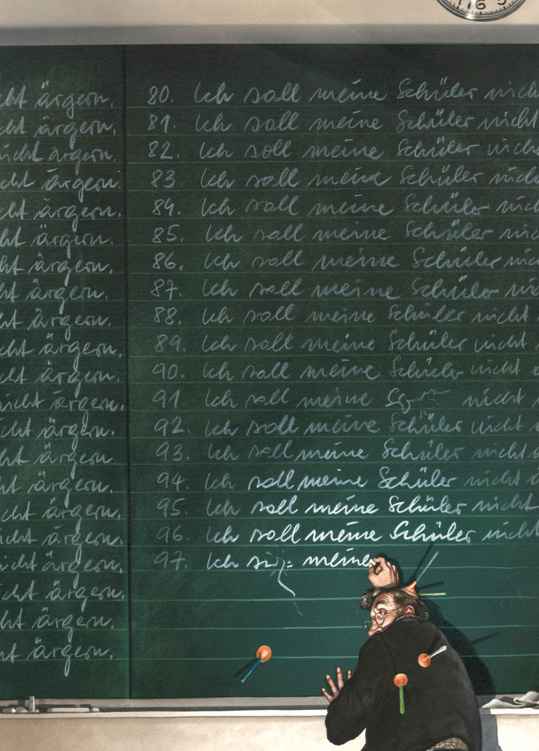 cht ärgern.
cht ärgern.
icht ärgern.
cht ärgern.
cht ärgern.
ht ärgern.
ht ärgern.
ht ärgern.
ht ärgern.
cht ärgern.
cht ärgern.
icht ärgern.
cht ärgern.
ht ärgern.
ht ärgern.
cht ärgern.
icht ärgern.
icht ärgern.
icht ärgern.
ht ärgern.
ht ärgern.
80. Ich soll meine Schüler nich
81. Ich soll meine Schüler nicht
82. Ich soll meine Schüler nich
83. Ich soll meine Schüler nich
84. Ich soll meine Schüler nic
85. Ich soll meine Schüler nic
86. Ich soll meine Schüler nich
87. Ich soll meine Schüler nic
88. Ich soll meine Schüler nicht
89. Ich soll meine Schüler nicht
90. Ich soll meine Schüler nicht
91 Ich soll meine nicht
92. Ich soll meine Schüler nicht
93. Ich soll meine Schüler nicht
94. Ich soll meine Schüler nicht
95. Ich soll meine Schüler nicht
96. Ich soll meine Schüler nicht
97. Ich meine